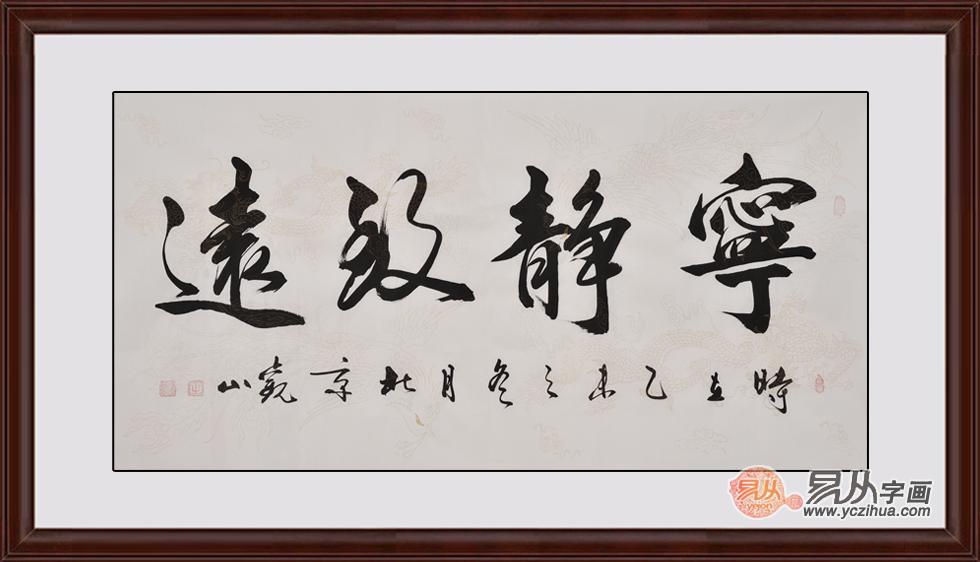 寧静致遠
時在乙未之冬月北京觀山
易从
易从字画
www.yczihua.com